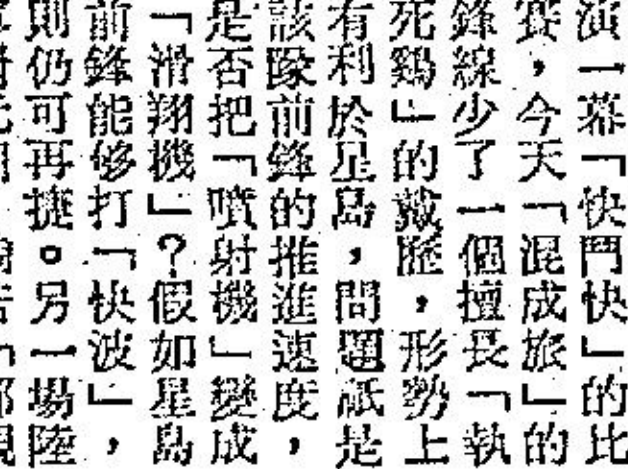 演一幕「快鬥快」的比
賽，今天「混成旅」的
鋒線少了一個擅長「執
死鷄」的戴歷，形勢上
有利於星島，問題祇是
該隊前鋒的推進速度，
是否把「噴射機」變成
「滑翔機」？假如星島
前鋒能够打「快波」，
則仍可再捷。另一場陸